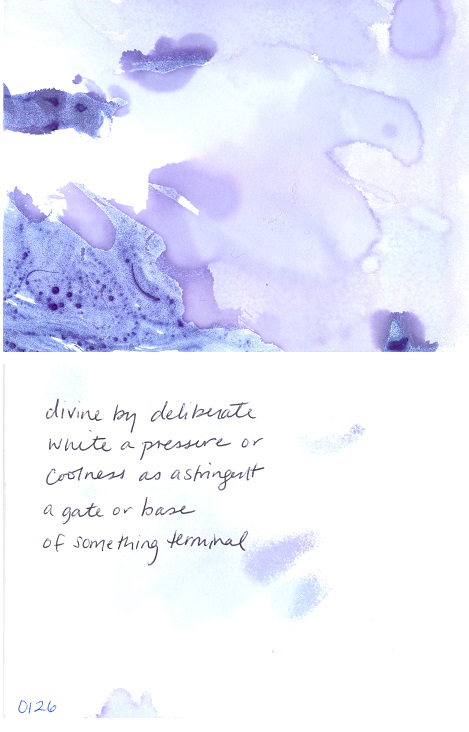 divine by deliberate
white a pressure or
coolness as astringent
a gate or base
of something terminal
0126